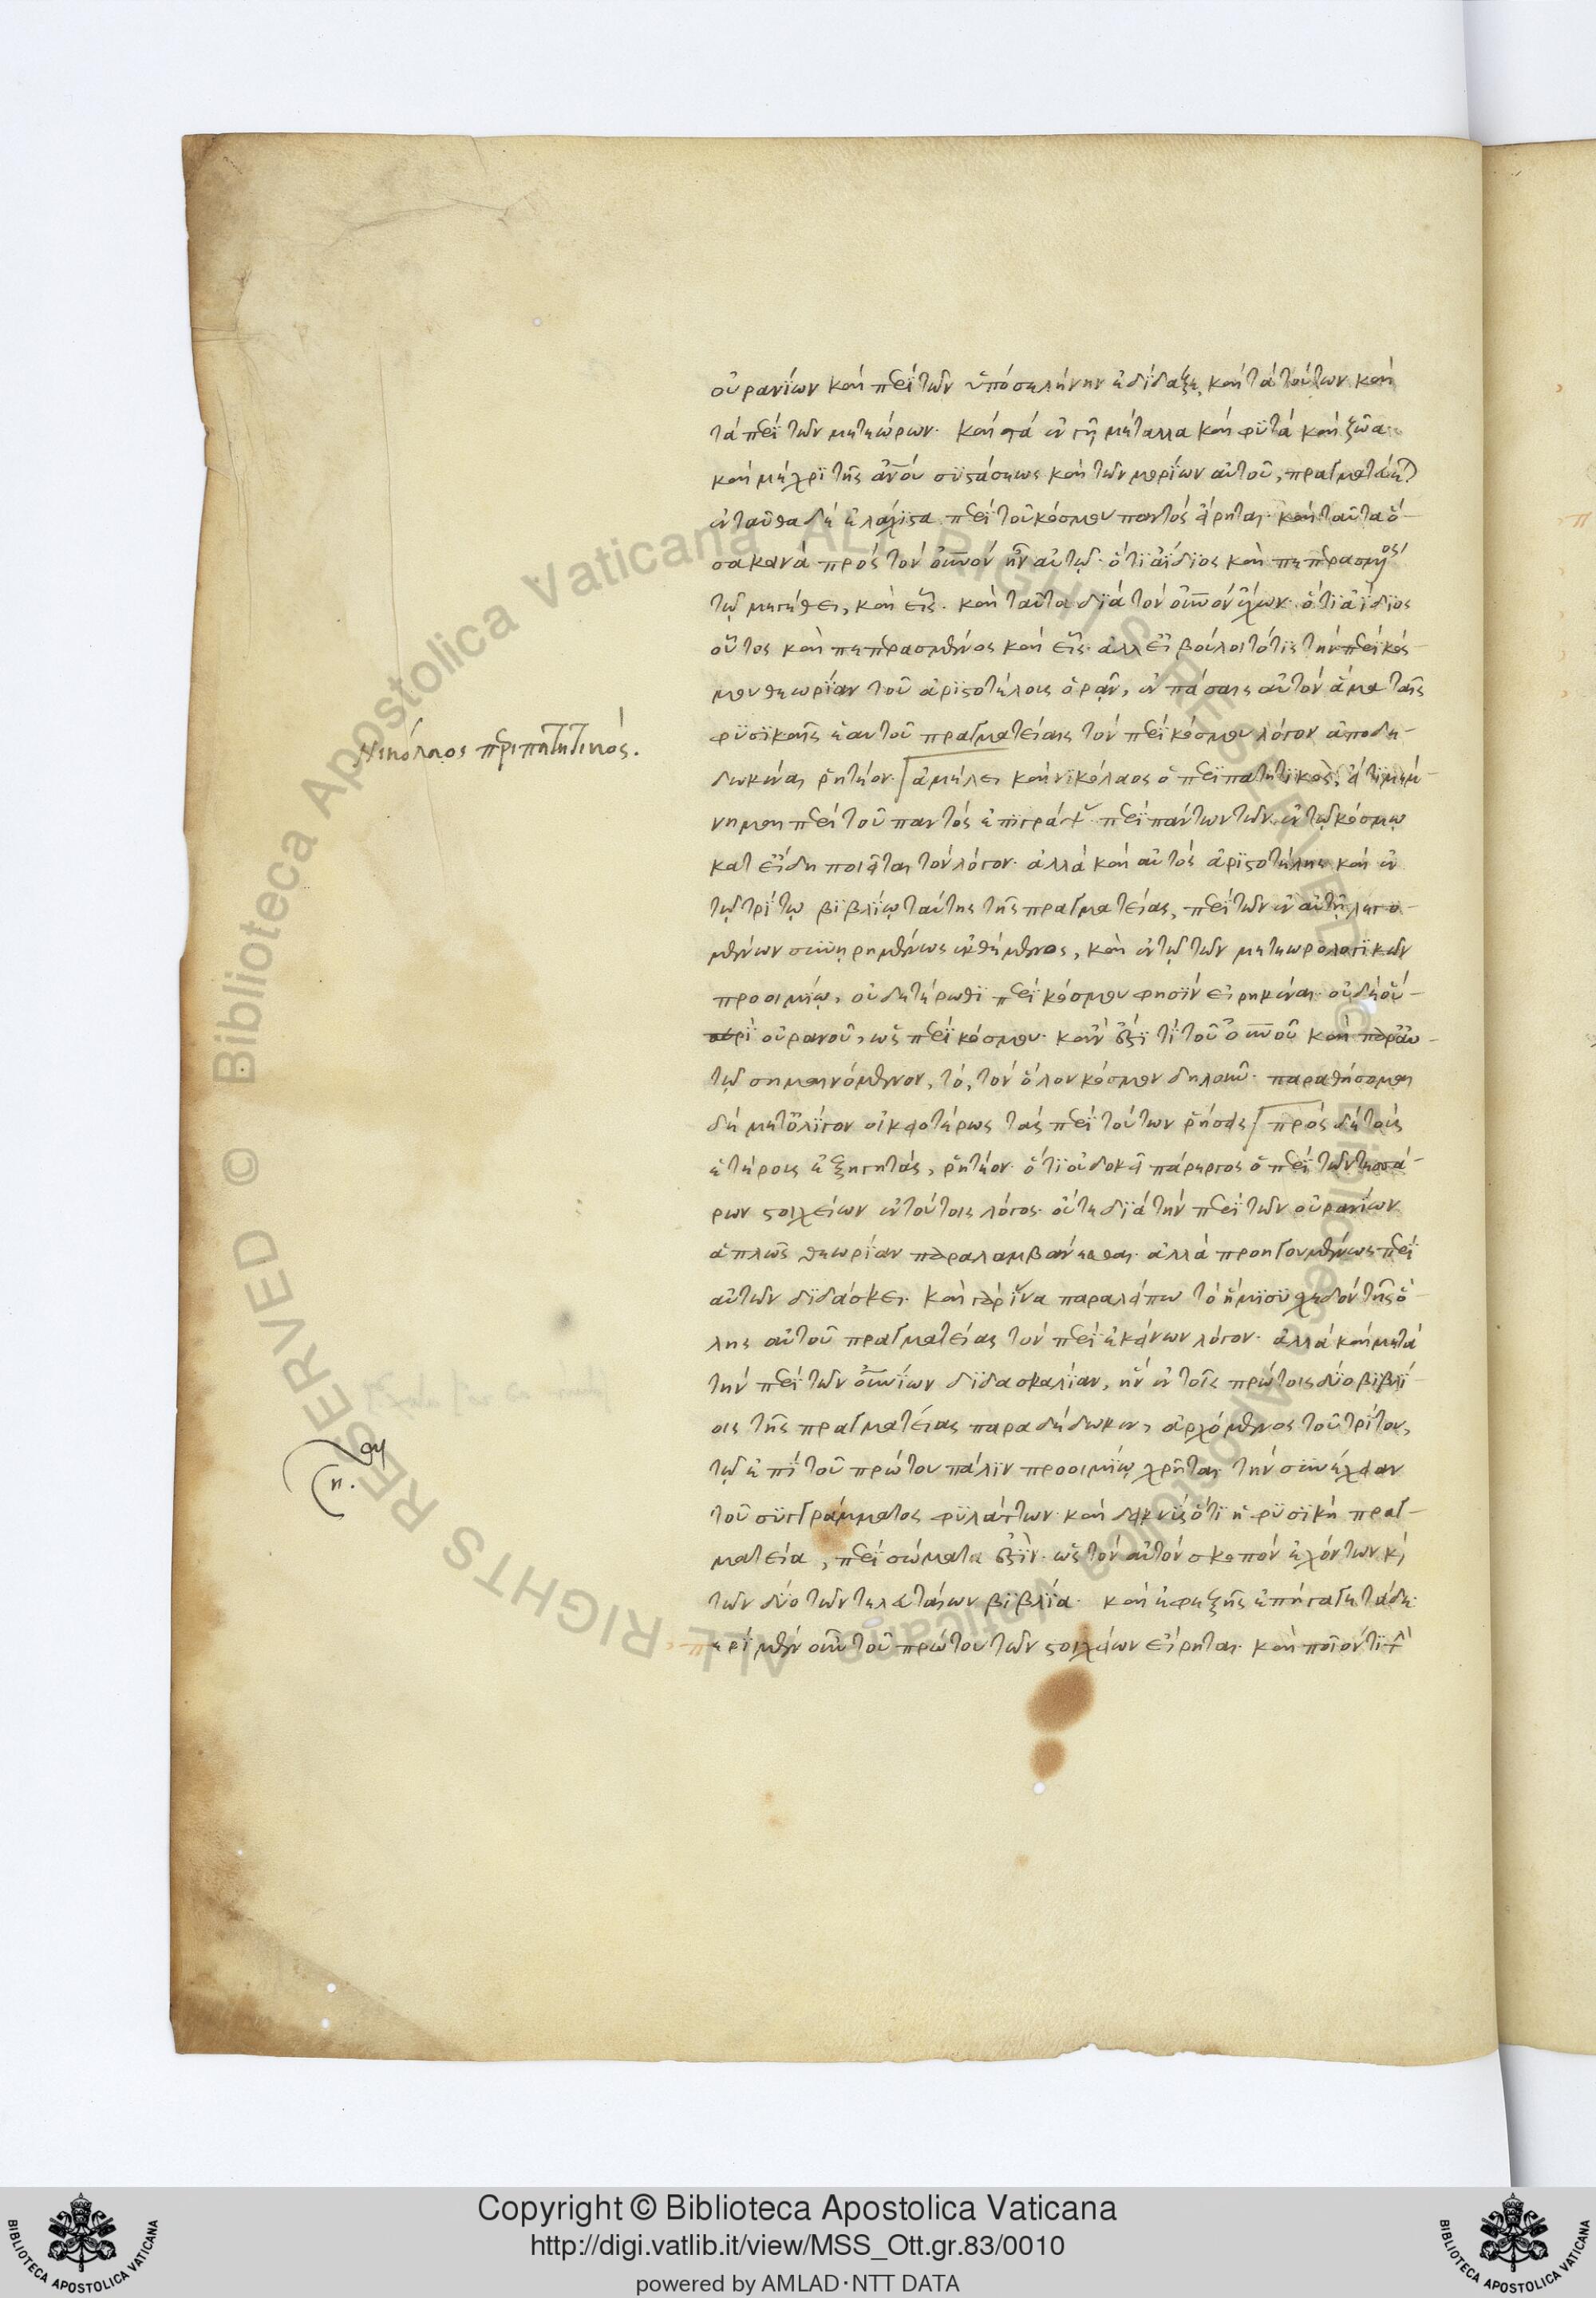 οὐρανίων καὶ περὶ τῶν ὑπὸ σελήνην ἐδίδαξε, καὶ τὰ τούτων καὶ
τὰ περὶ τῶν μετεώρων. καὶ τὰ ἐν γῇ μέταλλα καὶ φυτὰ καὶ ζῶα
καὶ μέχρι τῆς ἀνου συστάσεως καὶ τῶν μορίων αὐτοῦ, πραγματείας
ἐνταῦθα δὲ ἐλάχιστα περὶ τοῦ κόσμου παντὸς εἴρηται. καὶ ταῦτα ὅ-
σα κοινὰ πρὸς τὸν οὐνον ἦν αὐτῷ. ὅτι ἀΐδιος καὶ πεπερασμένος
τῷ μεγέθει, καὶ εἷς. καὶ ταῦτα διὰ τὸν οὐνον ἔχων. ὅτι ἀΐδιος
οὗτος καὶ πεπερασμένος καὶ εἷς. ἀλλ' εἰ βούλοιτό τις τὴν περὶ κόσ-
μου θεωρίαν τοῦ ἀριστοτέλους ὁρᾶν, ἐν πάσαις αὐτὸν ἅμα ταῖς
φυσικαῖς ἑαυτοῦ πραγματείαις τὸν περὶ κόσμου λόγον ἀποδε-
Νικόλαος περιπατητικός.
δωκέναι ῥητέον. ἀμέλει καὶ νικόλαος ὁ περιπατητικὸς, εἴ τι μέ-
μνημαι περὶ τοῦ παντὸς ἐπιγράψας περὶ πάντων τῶν ἐν τῷ κόσμῳ
κατ' εἴδη ποιεῖται τὸν λόγον. ἀλλὰ καὶ αὐτὸς ἀριστοτέλης καὶ ἐν
τῷ τρίτῳ βιβλίῳ ταύτης τῆς πραγματείας, περὶ τῶν ἐν αὐτῇ λεγο-
μένων συνῃρημένως ἐκθέμενος, καὶ ἐν τῷ τῶν μετεωρολογικῶν
προοιμίῳ, οὐδετέρωθι περὶ κόσμου φησὶν εἰρηκέναι. οὐδὲ οὕ-
περὶ οὐρανοῦ, ὡς περὶ κόσμου. κἂν ἐστί τι τοῦ οὐνοῦ καὶ παρ' αὐ-
τῷ σημαινόμενον, τὸ, τὸν ὅλον κόσμον δηλοῦν. παραθήσομαι
δὲ μετ' ὀλίγον οἰκειοτέρως τὰς περὶ τούτων ῥήσεις πρὸς δὲ τοὺς
ἑτέρους ἐξηγητὰς, ῥητέον. ὅτι οὐ δοκεῖ πάρεργος ὁ περὶ τῶν τεσσά-
ρων στοιχείων ἐν τούτοις λόγος. οὔτε διὰ τὴν περὶ τῶν οὐρανίων
ἁπλῶς θεωρίαν παραλαμβάνεσθαι. ἀλλὰ προηγουμένως περὶ
αὐτῶν διδάσκει. καὶ γὰρ ἵνα παραλείπω τὸ ἥμισυ σχεδὸν τῆς ὅ-
λης αὐτοῦ πραγματείας τὸν περὶ ἐκείνων λόγον. ἀλλὰ καὶ μετὰ
τὴν περὶ τῶν οὐνίων διδασκαλίαν, ἣν ἐν τοῖς πρώτοις δύο βιβλί-
οις τῆς πραγματείας παραδέδωκεν, ἀρχόμενος τοῦ τρίτου,
τῷ ἐπὶ τοῦ πρώτου πάλιν προοιμίῳ χρῆται τὴν συνέχειαν
τοῦ συγγράμματος φυλάττων. καὶ δεικνὺς ὅτι ἡ φυσικὴ πραγ-
ματεία, περὶ σώματα ἐστὶν. ὡς τὸν αὐτὸν σκοπὸν ἐχόντων καὶ
τῶν δύο τῶν τελευταίων βιβλία. καὶ ἐφεξῆς ἐπήγαγε τάδε.
περὶ μὲν οὖν τοῦ πρώτου τῶν στοιχείων εἴρηται. καὶ ποῖόν τι τὴν
Copyright © Biblioteca Apostolica Vaticana
http://digi.vatlib.it/view/MSS_Ott.gr.83/0010
powered by AMLAD·NTT DATA
BIBLIOTECA APOSTOLICA VATICANA
BIBLIOTECA APOSTOLICA VATICANA
© Biblioteca Apostolica Vaticana ALL RIGHTS RESERVED © Biblioteca Apostolica Vaticana ALL RIGHTS RESERVED